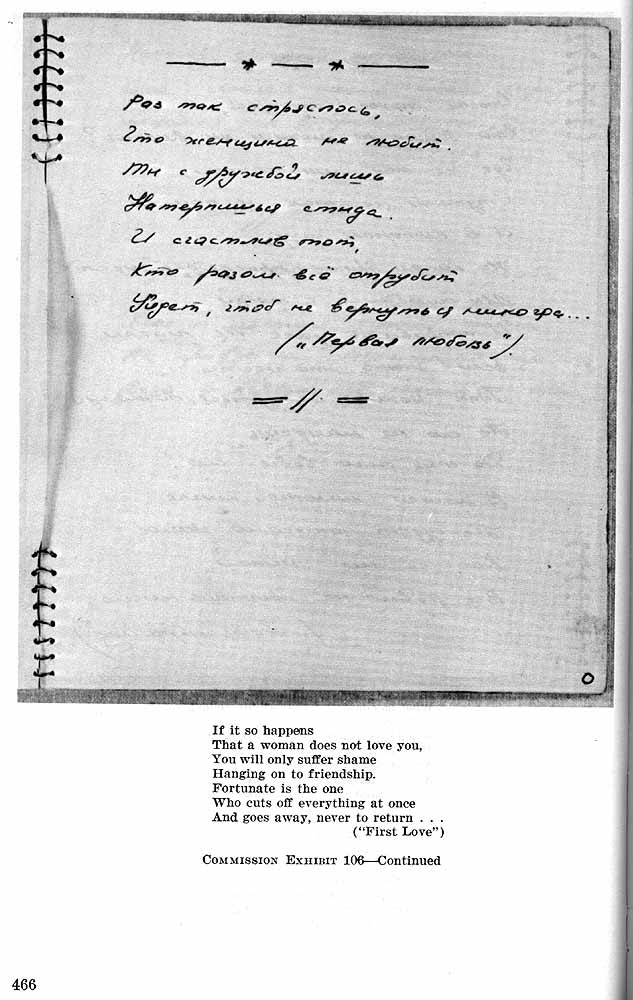 — * — * —
Раз так стряслось,
Что женщина не любит.
Ты с дружбой лишь
Натерпишься стыда.
И счастлив тот,
Кто разом всё отрубит
Уйдет, чтоб не вернуться никогда...
(„Первая любовь").
= // =
0
If it so happens
That a woman does not love you,
You will only suffer shame
Hanging on to friendship.
Fortunate is the one
Who cuts off everything at once
And goes away, never to return . . .
("First Love")
COMMISSION EXHIBIT 106—Continued
466